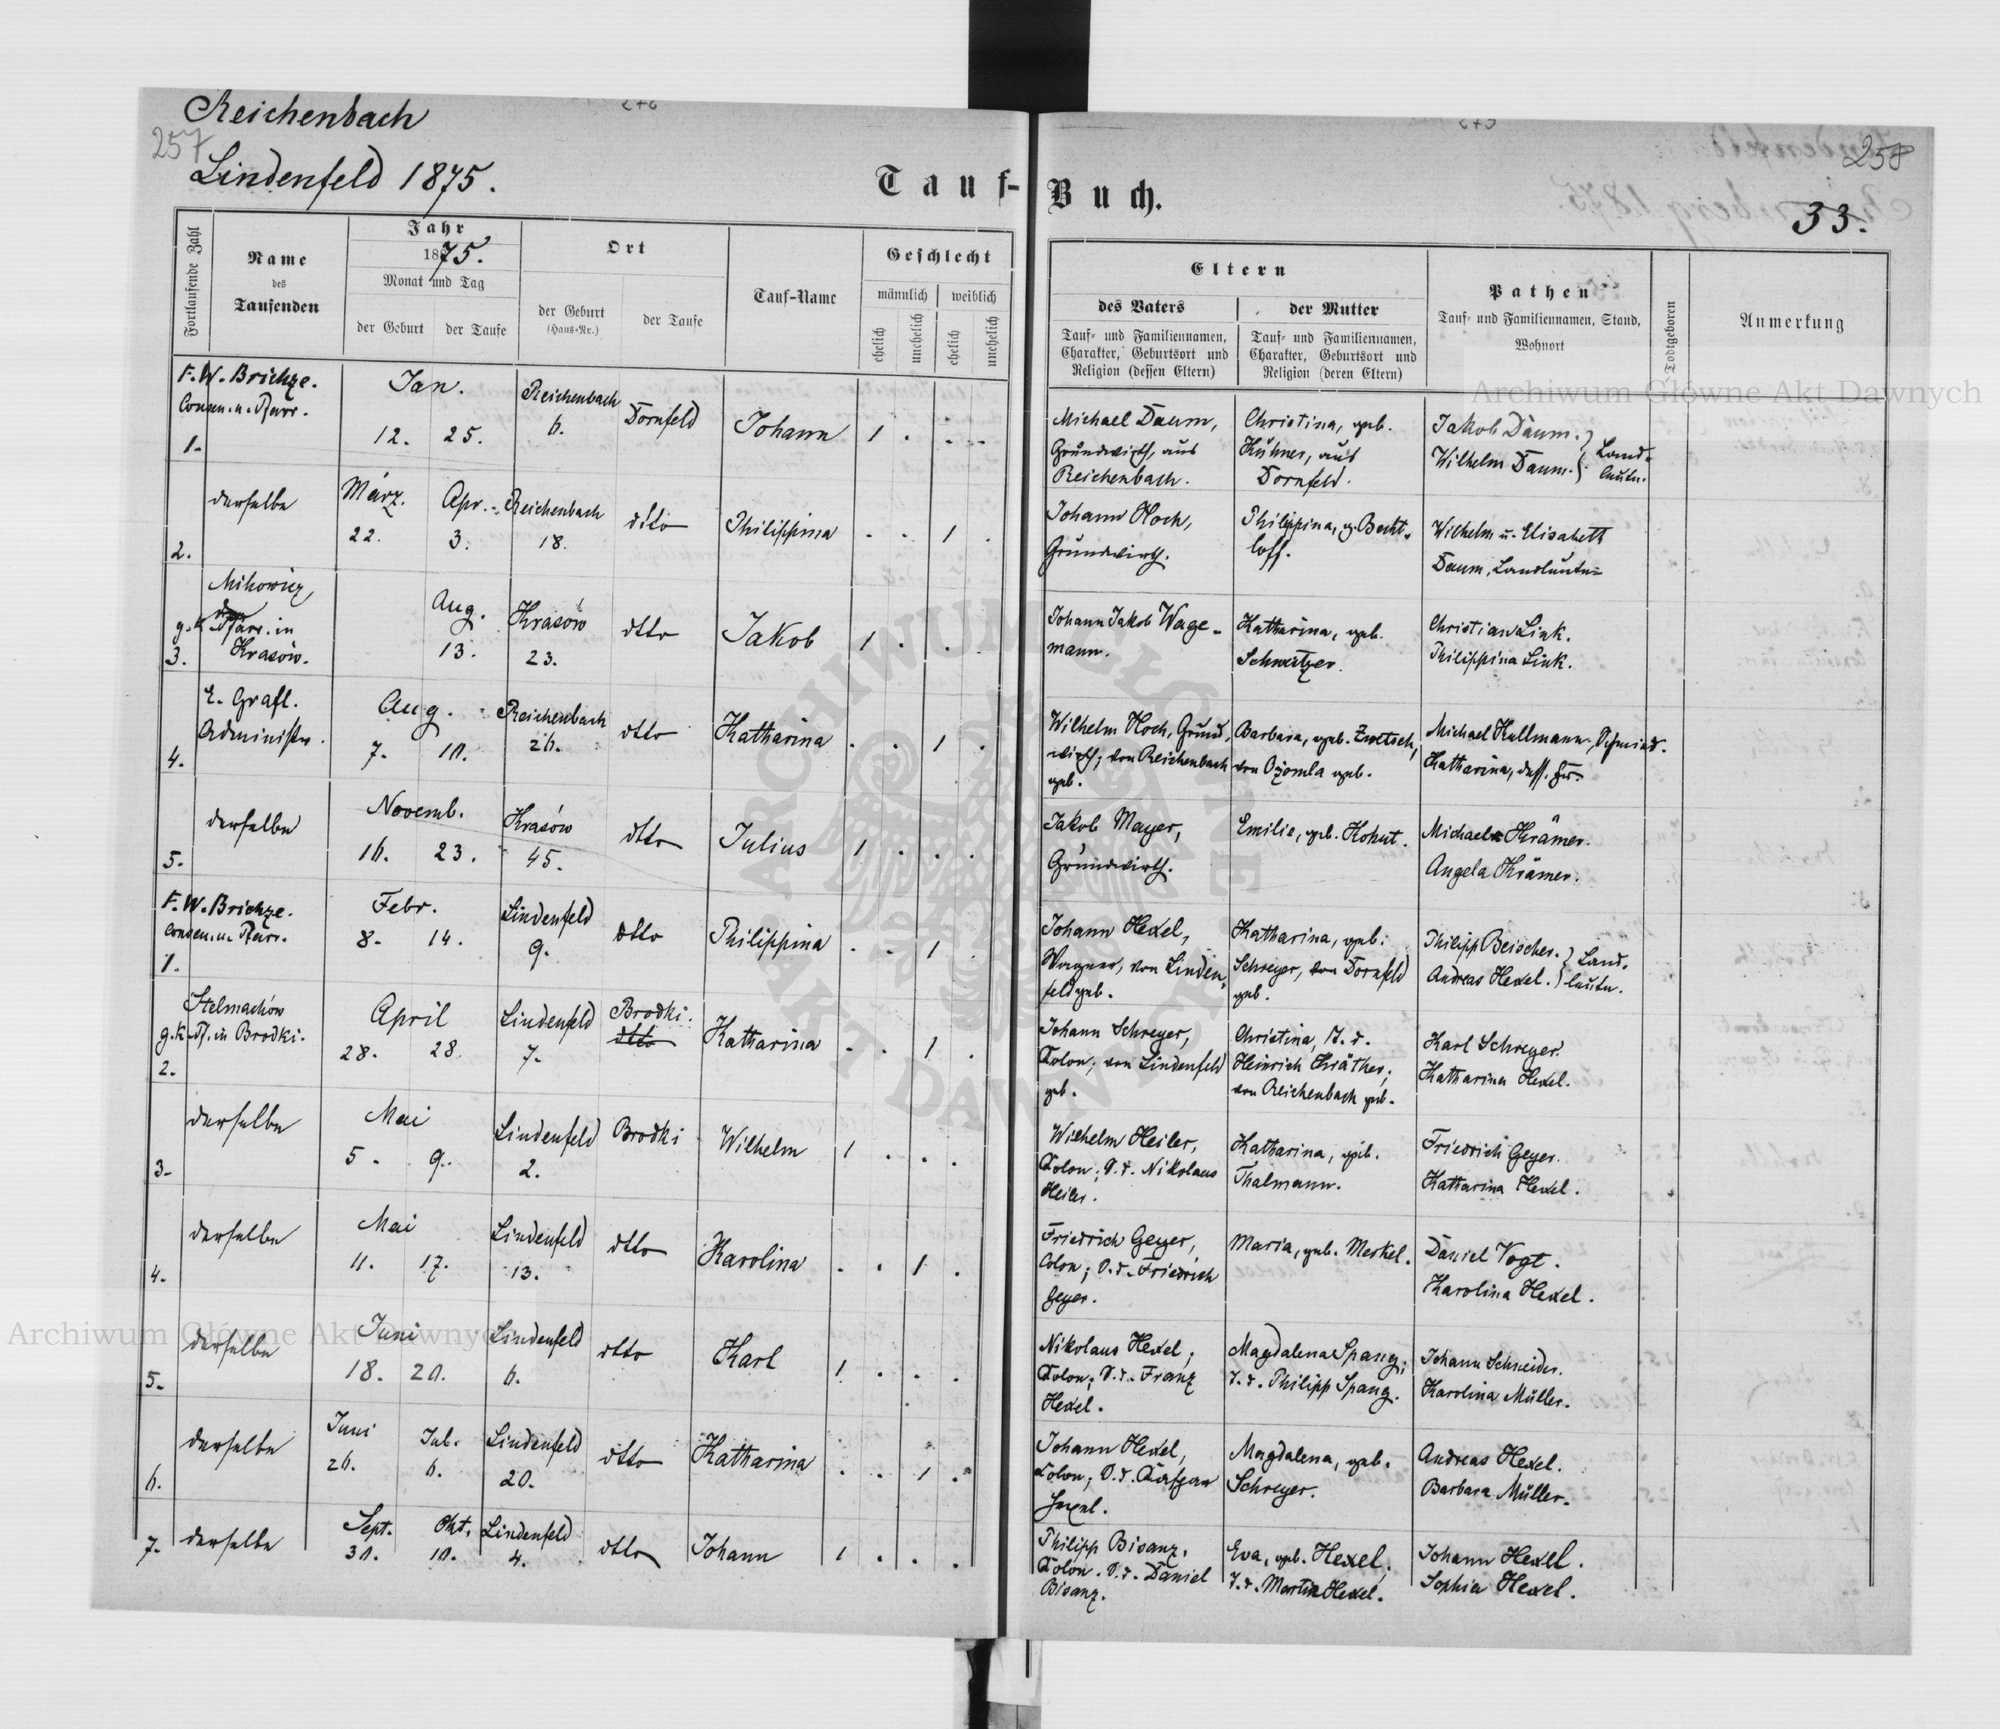 Reichenbach
257
Lindenfeld 1875.
Tauf-Buch.
258
33.
Fortlaufende Zahl
Name
des
Taufenden
Jahr
1875.
Monat und Tag
der Geburt
der Taufe
Ort
der Geburt
(Haus-Nr.)
der Taufe
Tauf-Name
Geschlecht
männlich
weiblich
ehelich
unehelich
ehelich
unehelich
Eltern
des Vaters
Tauf- und Familiennamen,
Charakter, Geburtsort und
Religion (dessen Eltern)
der Mutter
Tauf- und Familiennamen,
Charakter, Geburtsort und
Religion (deren Eltern)
Pathen
Tauf- und Familiennamen, Stand,
Wohnort
Todtgeboren
Anmerkung
F. W. Brichze.
Pfarr.
1.
Jan.
12. 25.
Reichenbach
6.
Dornfeld
Johann
1 . . .
Michael Daum,
Grundwirth, aus
Reichenbach.
Christina, geb.
Kühner, aus
Dornfeld.
Jakob Daum.
Wilhelm Daum.
Land-
leute.
2.
derselbe
März. Apr.
22. 3.
Reichenbach
18.
dtto
Philippina
. . 1 .
Johann Hoch,
Grundwirth.
Philippina, g. Becht-
loff.
Wilhelm u. Elisabeth
Daum, Landleute
Mikowicz
g. k. Pfarr. in
Krasów.
3.
Aug.
13.
Krasów
23.
dtto
Jakob
1 . . .
Johann Jakob Wage-
mann.
Katharina, geb.
Schweitzer.
Christian Link.
Philippina Link.
E. Grafl.
Administr.
4.
Aug.
7. 10.
Reichenbach
26.
dtto
Katharina
. . 1 .
Wilhelm Hoch, Grund-
wirth; von Reichenbach
geb.
Barbara, geb. Zwetsch,
von Ozomla geb.
Michael Kullmann, Schmied.
Katharina, dess. Fr.
5.
derselbe
Novemb.
16. 23.
Krasów
45.
dtto
Julius
1 . . .
Jakob Mayer,
Grundwirth.
Emilie, geb. Kohut.
Michael Krämer.
Angela Krämer.
F. W. Brichze.
Pfarr.
1.
Febr.
8. 14.
Lindenfeld
9.
dtto
Philippina
. . 1 .
Johann Hexel,
Wagner, von Linden-
feld geb.
Katharina, geb.
Schreyer, von Dornfeld
geb.
Philipp Beischer.
Andreas Hexel.
Land-
leute.
Stelmachów
g. k. Pf. in Brodki.
2.
April
28. 28.
Lindenfeld
7.
Brodki.
dtto
Katharina
. . 1 .
Johann Schreyer,
Kolon; von Lindenfeld
geb.
Christina, T. d.
Heinrich Kräther;
von Reichenbach geb.
Karl Schreyer.
Katharina Hexel.
3.
derselbe
Mai
5. 9.
Lindenfeld
2.
Brodki
Wilhelm
1 . . .
Wilhelm Heiler,
Kolon; S. d. Nikolaus
Heiler.
Katharina, geb.
Thalmann.
Friedrich Geyer.
Katharina Hexel.
4.
derselbe
Mai
11. 17.
Lindenfeld
13.
dtto
Karolina
. . 1 .
Friedrich Geyer,
Colon; S. d. Friedrich
Geyer.
Maria, geb. Merkel.
Daniel Vogt.
Karolina Hexel.
5.
derselbe
Juni
18. 20.
Lindenfeld
6.
dtto
Karl
1 . . .
Nikolaus Hexel;
Kolon; S. d. Franz
Hexel.
Magdalena Spang;
T. d. Philipp Spang.
Johann Schneider.
Karolina Müller.
6.
derselbe
Juni Jul.
26. 6.
Lindenfeld
20.
dtto
Katharina
. . 1 .
Johann Hexel,
Kolon; S. d.
Hexel.
Magdalena, geb.
Schreyer.
Andreas Hexel.
Barbara Müller.
7.
derselbe
Sept. Okt.
30. 10.
Lindenfeld
4.
dtto
Johann
1 . . .
Philipp Bisanz,
Kolon. S. d. Daniel
Bisanz.
Eva, geb. Hexel,
T. d. Martin Hexel.
Johann Hexel.
Sophia Hexel.
Archiwum Główne Akt Dawnych
Archiwum Główne Akt Dawnych
ARCHIWUM GŁÓWNE AKT DAWNYCH